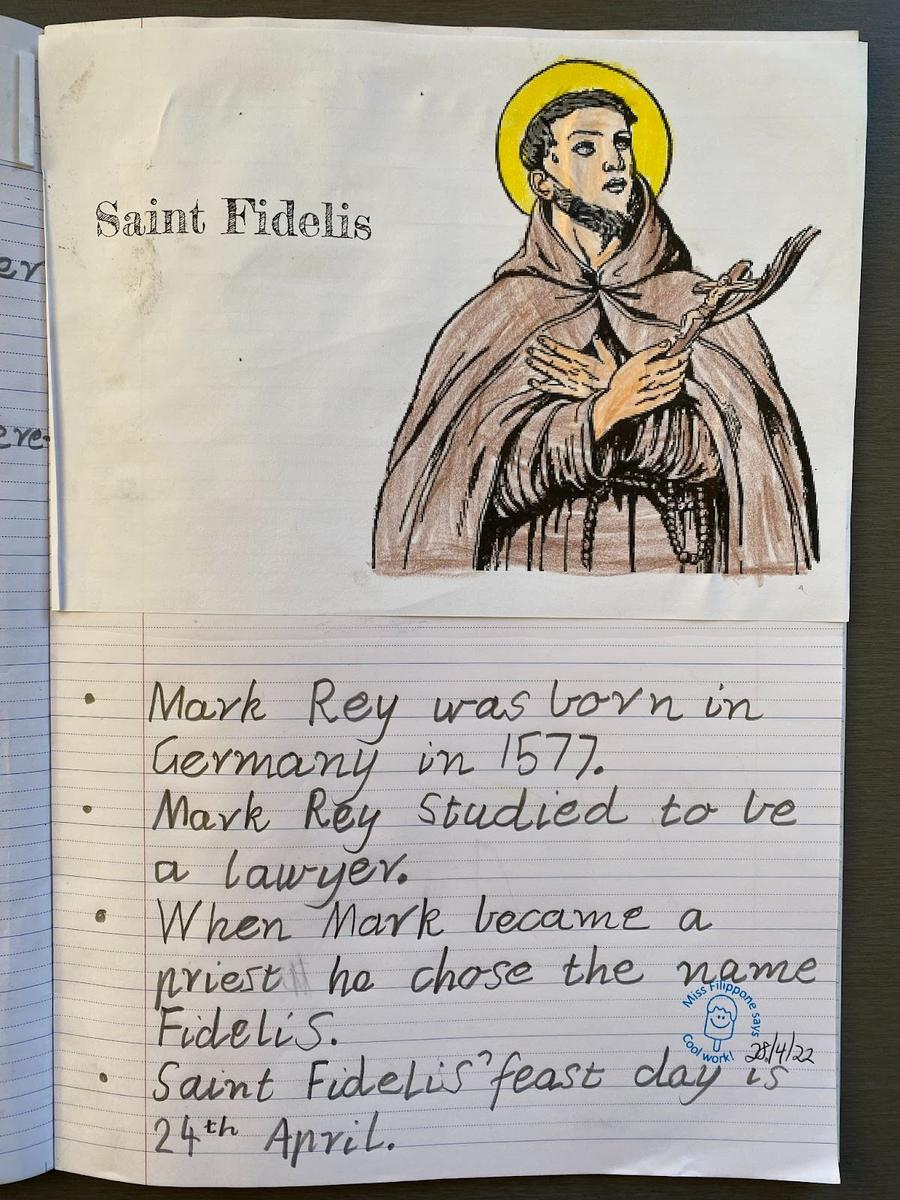 er
ere
Saint Fidelis
• Mark Rey was born in
Germany in 1577.
• Mark Rey studied to be
a lawyer.
• When Mark became a
priest he chose the name
Fidelis.
Miss Filippone says
Cool work!
28/4/22
• Saint Fidelis' feast day is
24th April.